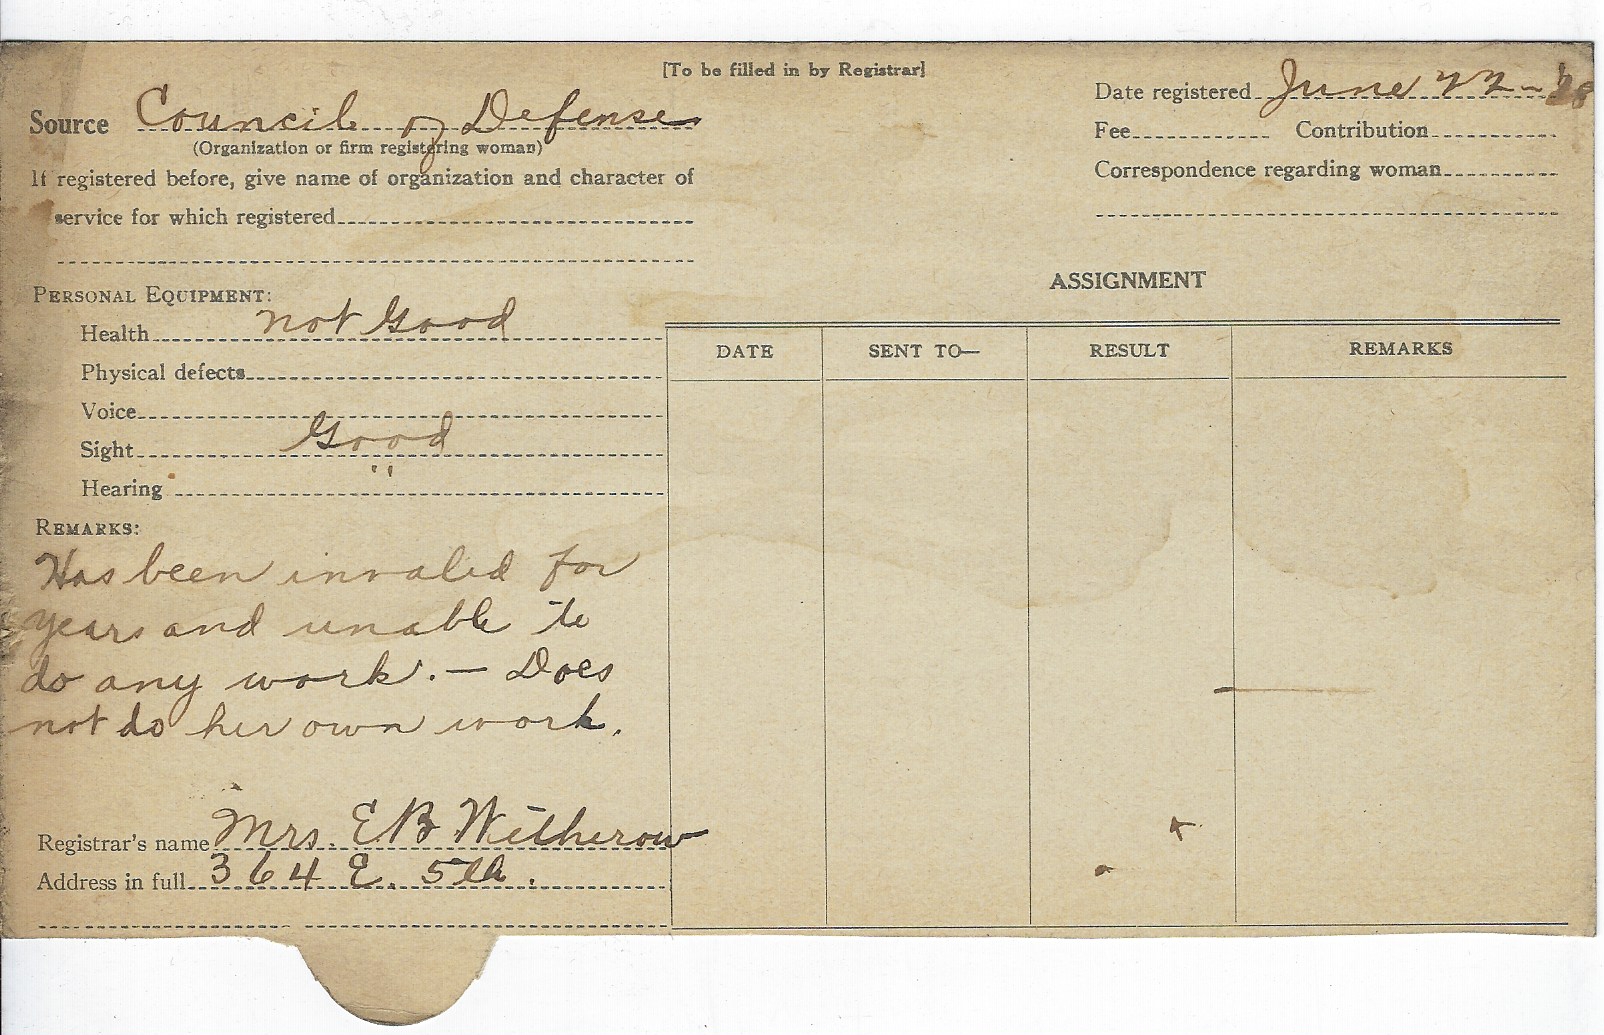 [To be filled in by Registrar]
Source Council of Defense
(Organization or firm registering woman)
If registered before, give name of organization and character of
service for which registered
Date registered June 22 -
Fee Contribution
Correspondence regarding woman
PERSONAL EQUIPMENT:
Health not Good
Physical defects
Voice
Sight Good
Hearing "
REMARKS:
Has been invalid for
years and unable to
do any work. — Does
not do her own work.
Registrar's name Mrs. E B Witherow
Address in full 364 E. 5th.
ASSIGNMENT
DATE SENT TO— RESULT REMARKS